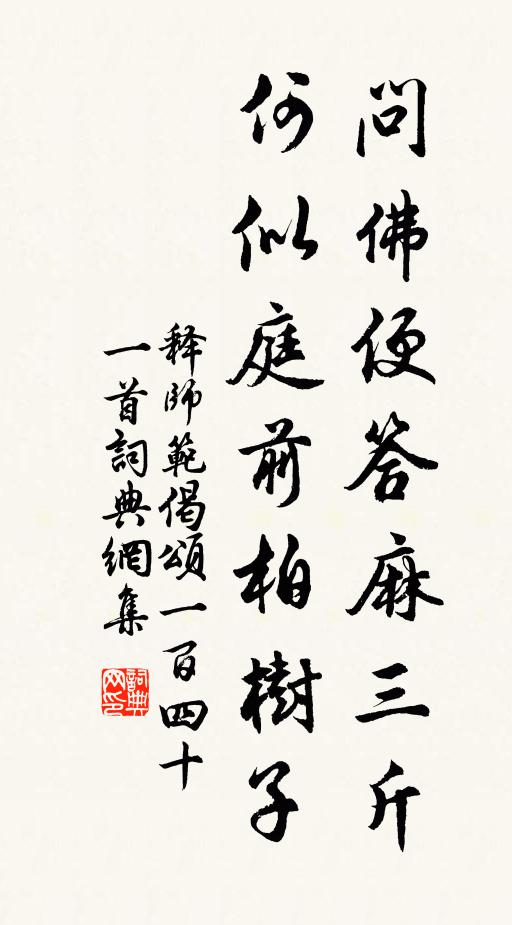 問佛便答麻三斤
何似庭前柏樹子
释師範偈頌一百四十
一首詞典網集
詞典
网印